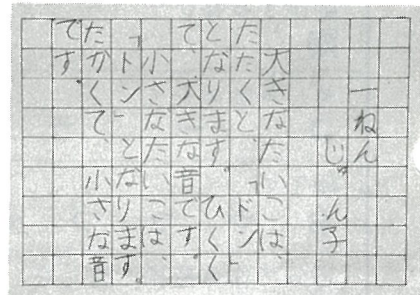 一ねん
じゅん子
大きなたいこは、
たたくと、「ドン」
となります。ひくく
て、大きな音です。
小さなたいこは、
「トン」となります。
たかくて、小さな音
です。